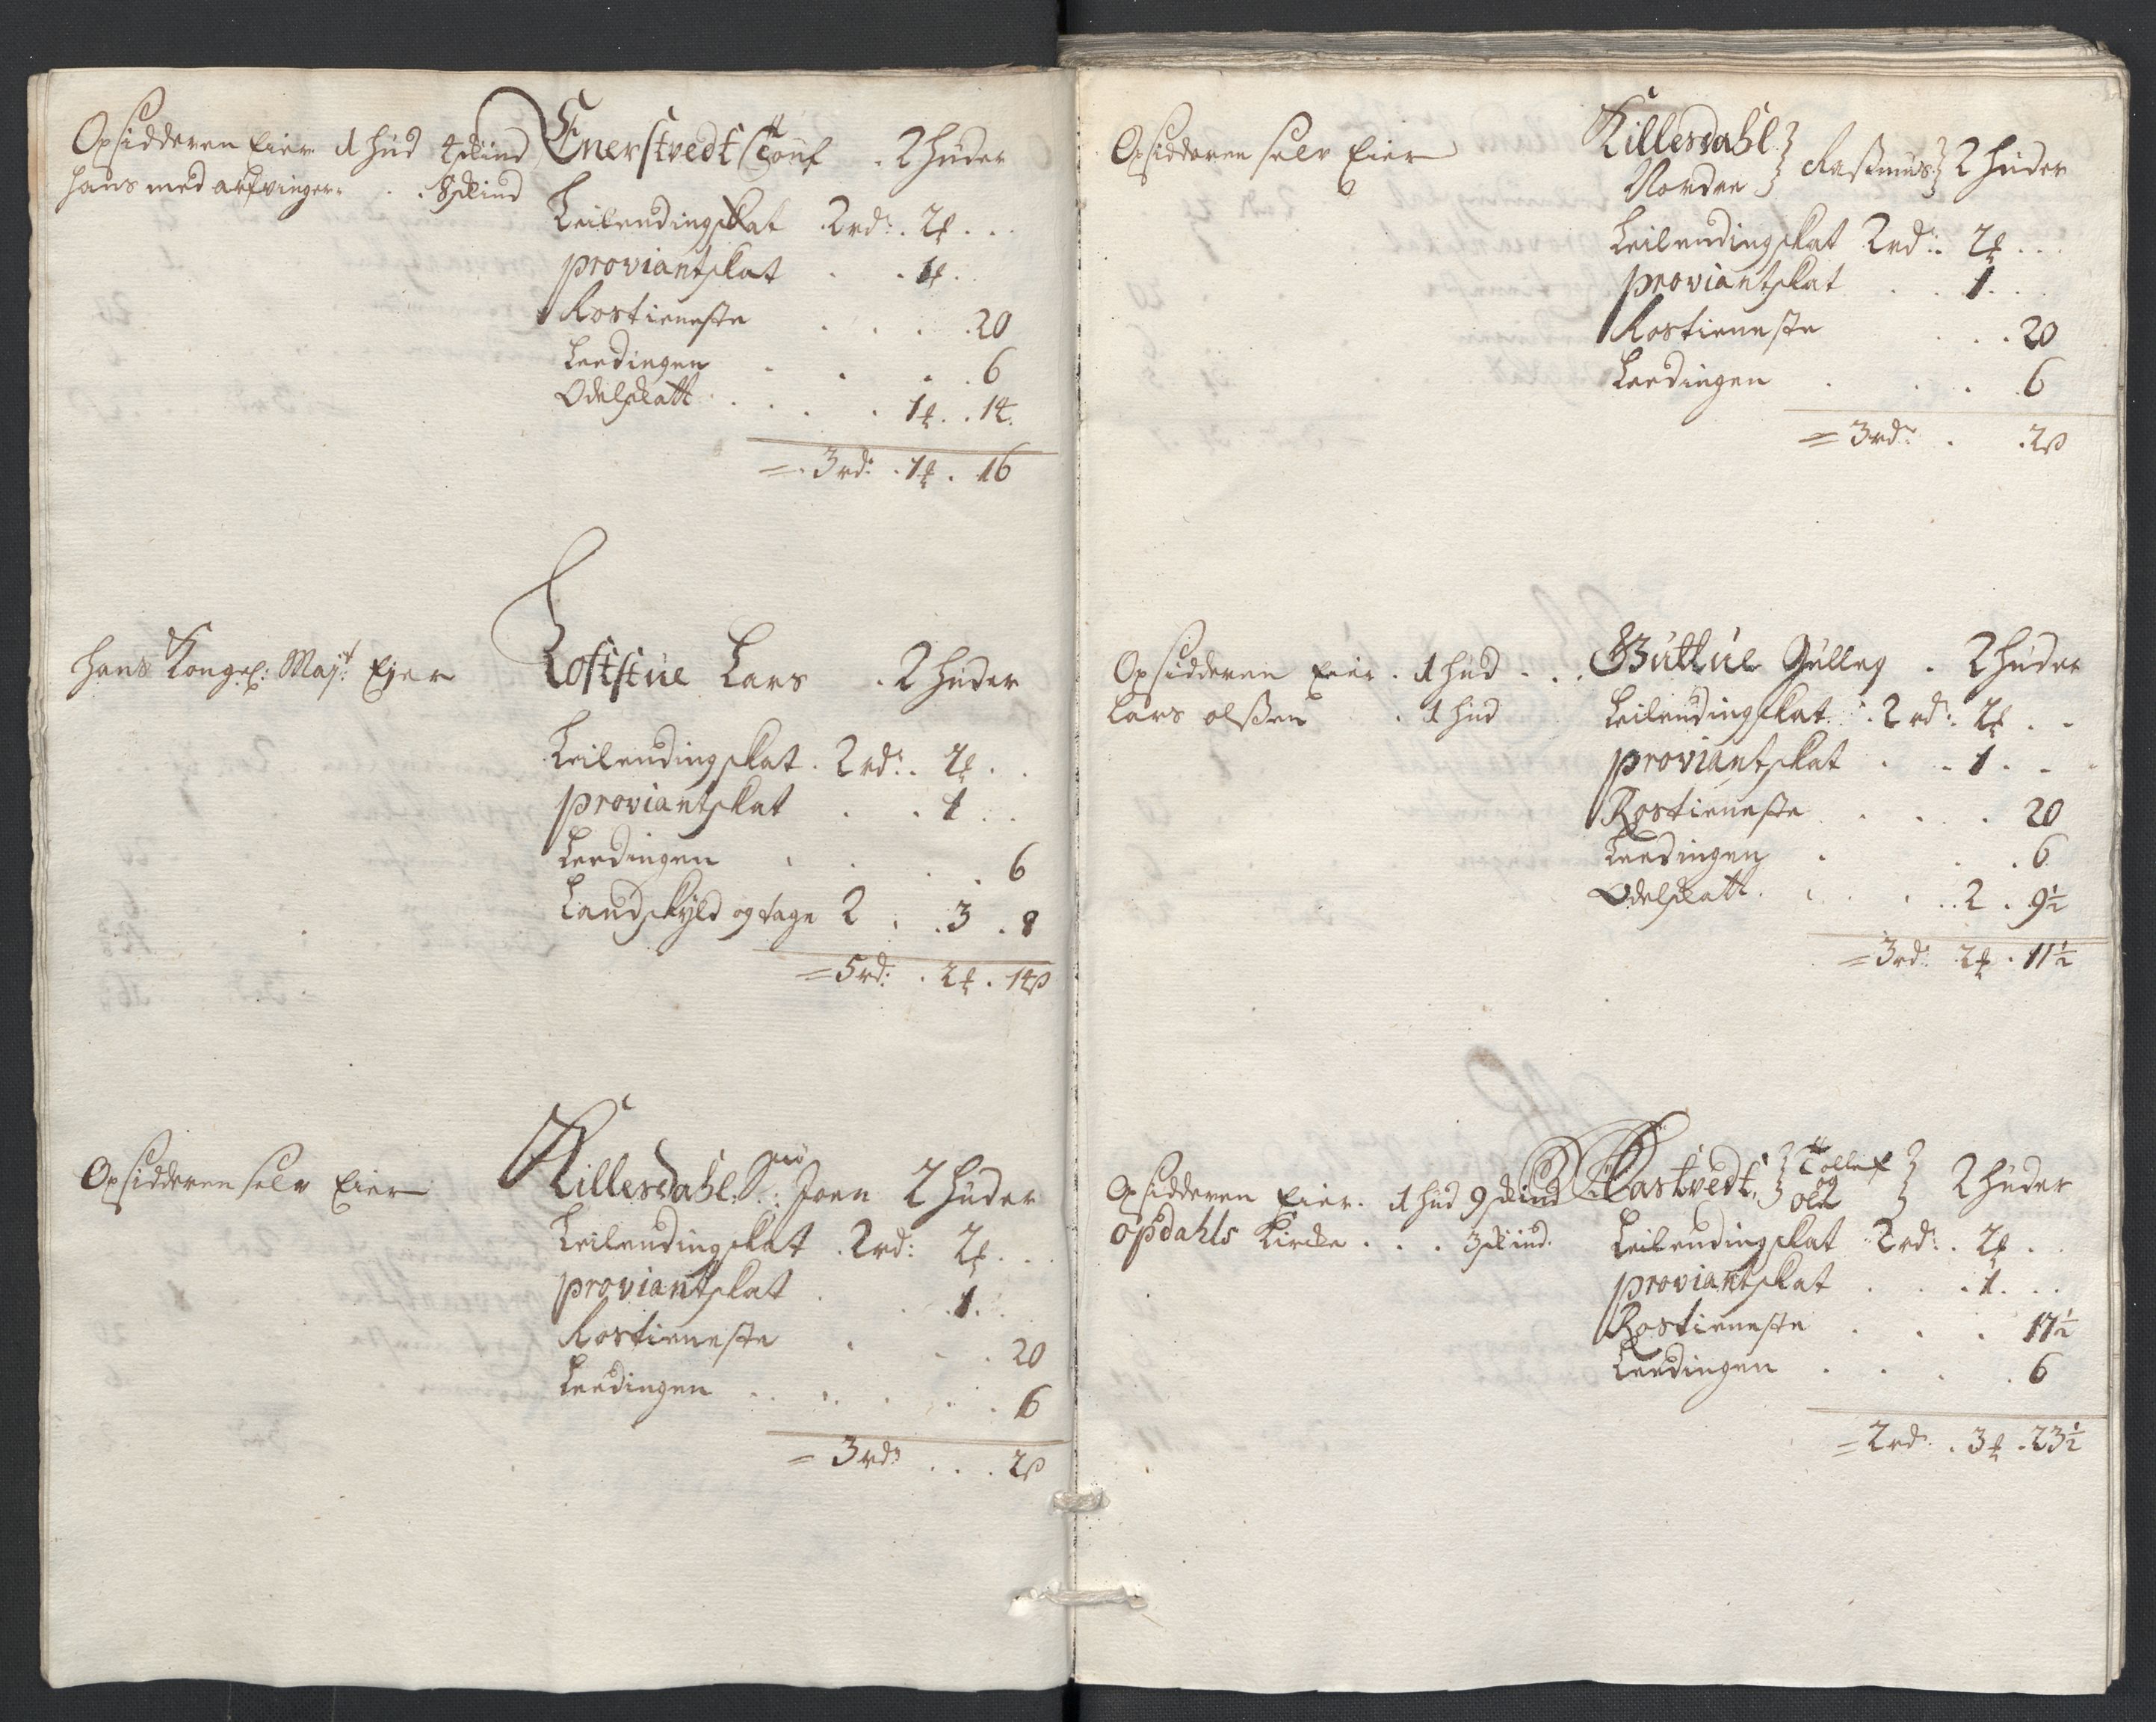 Opsidderen Eier 1 hud 4 skind
Hans med arfvinger . . 8 skind
Enerstvedt Touf . 2 huder
Leilendingskat 2 rd: . 2 . . .
proviantskat . . 1 .
Rostieneste . . . . 20
Leedingen . . . . 6
Odelskatt . . . . 1 . . 14.
= . 3 rd: . 1 . 16
Hans Kongel: Maj:t Ejer
Loftstue Lars . 2 huder
Leilendingskat . 2 rd: . 2 . .
proviantskat . . 1 . .
Leedingen . . . . 6
Landskyld og tage 2 . . 3 . 8
= 5 rd: . 2 . 14 s
Opsidderen selv Eier
Killesdahl Sør: Joen 2 huder
Leilendingskat . 2 rd: 2 . . .
proviantskat . . . 1 . .
Rostieneste . . . 20
Leedingen . . . . . 6
= 3 rd: . . . 2 s
Opsidderen selv Eier
Killesdahl Nordre Rasmus 2 huder
Leilendingskat 2 rd: . 2 . . .
proviantskat . . 1 . .
Rostieneste . . . 20
Leedingen . . . 6
= 3 rd: . . 2 s
Opsidderen Eier . 1 hud . . .
Lars olßen . 1 hud
Guttue Gulleg . 2 huder
Leilendingskat . 2 rd: . 2 . .
proviantskat . . 1 . . .
Rostieneste . . . 20
Leedingen . . . 6
Odelskatt . . . . . 2 . 9½
= 3 rd: 2 . 11½
Opsidderen Eier . 1 hud 9 skind
opdahls Kircke . . . 3 skind.
Kastvedt Tollef og Ole 2 huder
Leilendingskat 2 rd: . 2 . .
proviantskat . . . 1 . . .
Rostieneste . . . 17½
Leedingen . . . . 6
= 2 rd: . 3 . 23½